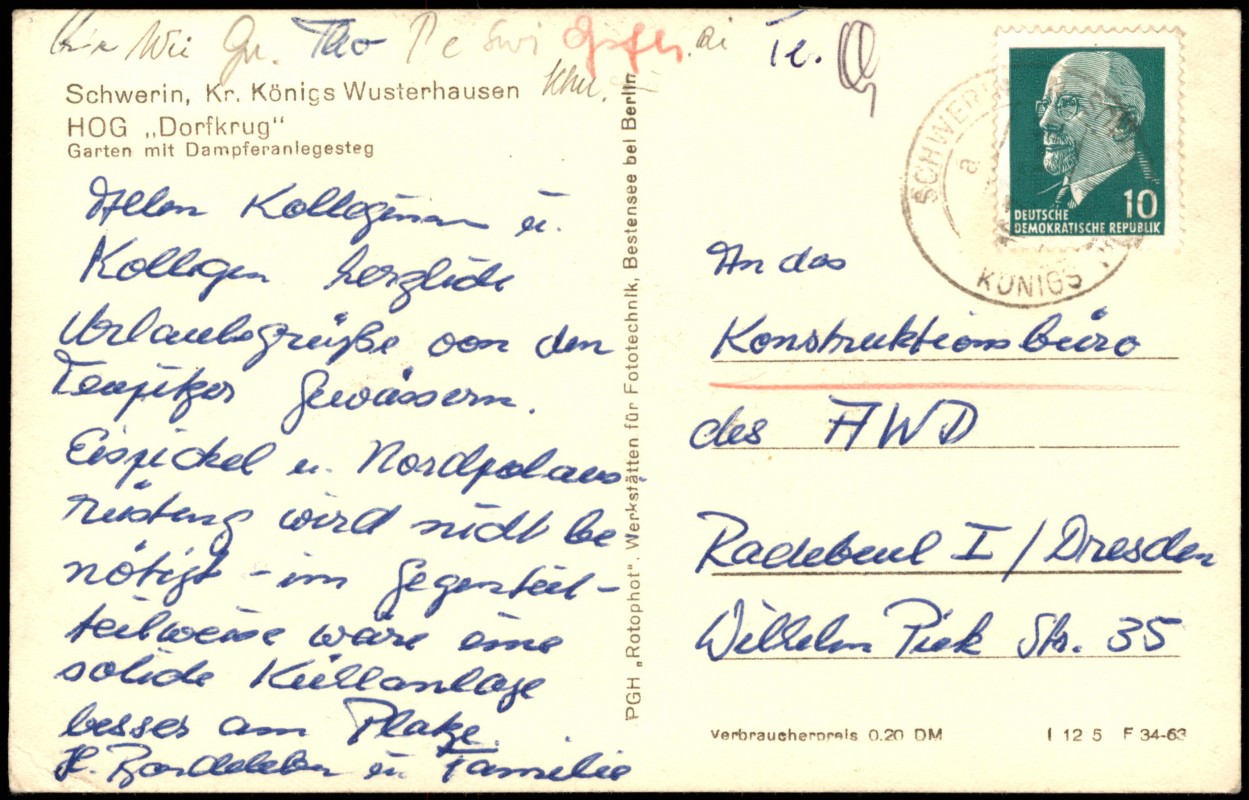 Wii Gr. Tho Pe
Te.
Schwerin, Kr. Königs Wusterhausen
HOG „Dorfkrug"
Garten mit Dampferanlegesteg
Allen Kolleginnen u.
Kollegen herzliche
Urlaubsgrüße von den
Teupitzer Gewässern.
Eispickel u. Nordpolaus-
rüstung wird nicht be
nötigt - im Gegenteil -
teilweise wäre eine
solide Kühlanlage
besser am Platze.
H. Bardeleben u Familie
PGH „Rotophot". Werkstätten für Fototechnik, Bestensee bei Berlin
SCHWERIN
a
KÖNIGS
10
DEUTSCHE
DEMOKRATISCHE REPUBLIK
An das
Konstruktionsbüro
des AWD
Radebeul I / Dresden
Wilhelm Piek Str. 35
Verbraucherpreis 0.20 DM I 12 5 F 34-63